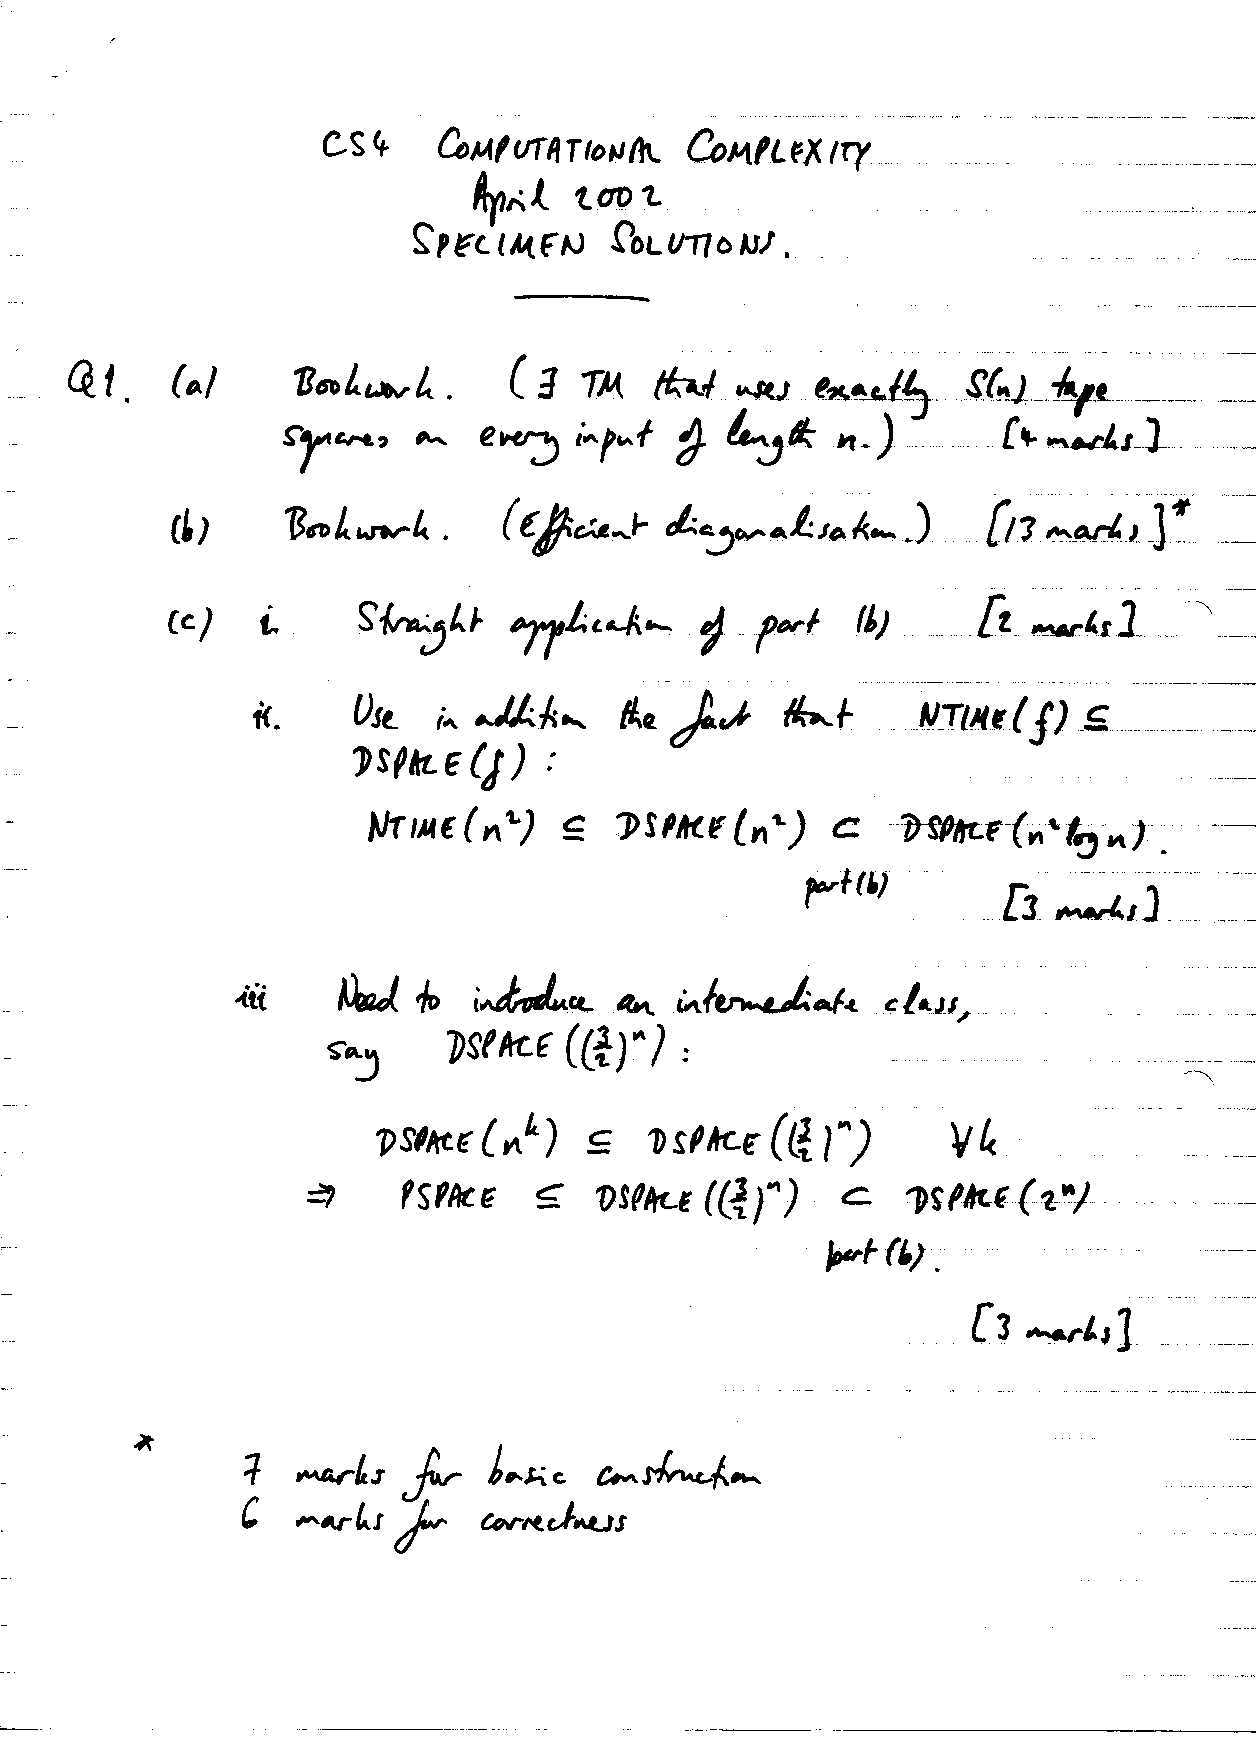 CS4 COMPUTATIONAL COMPLEXITY
April 2002
SPECIMEN SOLUTIONS.
Q1. (a) Bookwork. (∃ TM that uses exactly S(n) tape
squares on every input of length n.) [4 marks]
(b) Bookwork. (Efficient diagonalisation.) [13 marks]*
(c) i. Straight application of part (b) [2 marks]
ii. Use in addition the fact that NTIME(f) ⊆
DSPACE(f) :
NTIME(n²) ⊆ DSPACE(n²) ⊂ DSPACE(n² log n).
part (b)
[3 marks]
iii Need to introduce an intermediate class,
say DSPACE((3/2)ⁿ) :
DSPACE(nᵏ) ⊆ DSPACE((3/2)ⁿ) ∀k
⇒ PSPACE ⊆ DSPACE((3/2)ⁿ) ⊂ DSPACE(2ⁿ)
part (b).
[3 marks]
* 7 marks for basic construction
6 marks for correctness